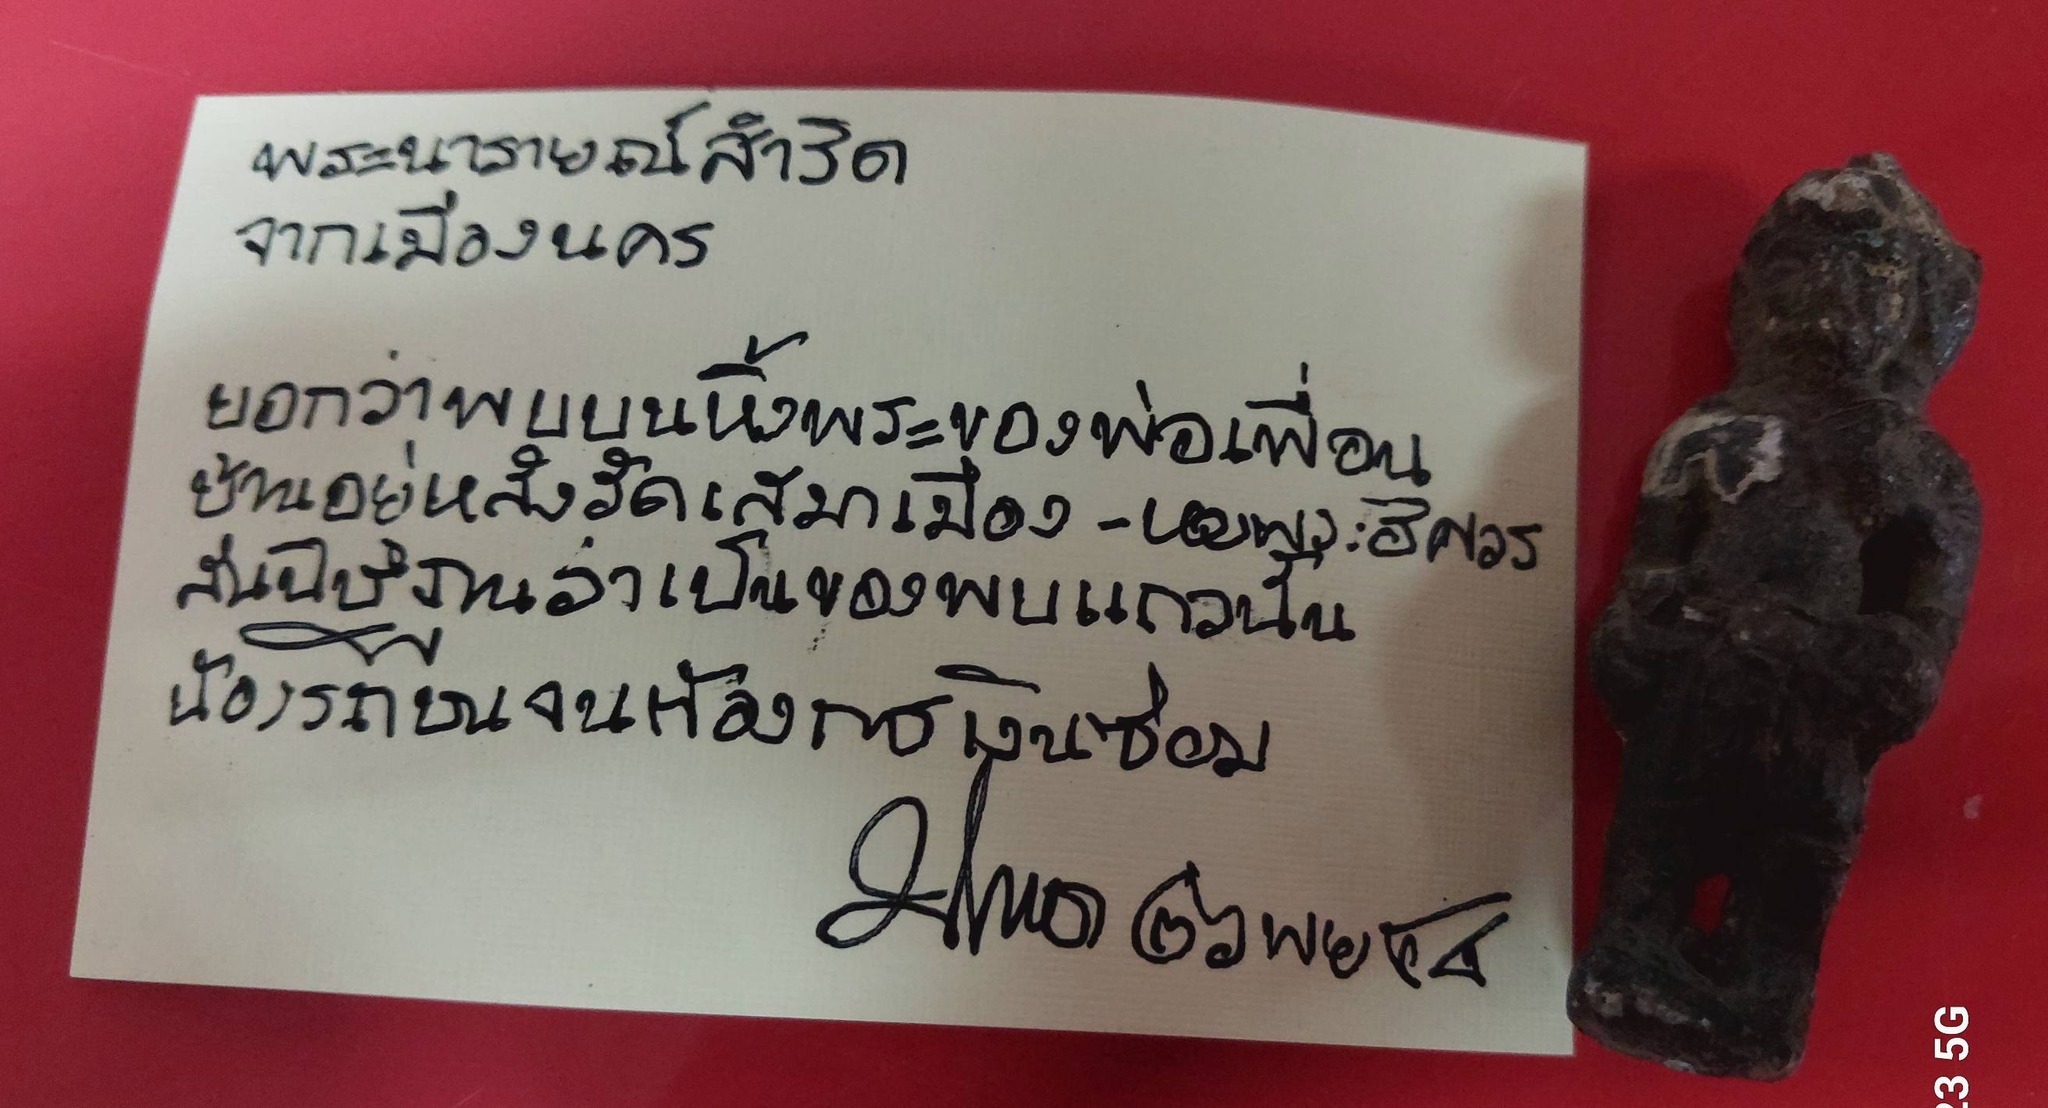 พระนารายณ์สำริด
จากเมืองนคร
บอกว่าพบบนหิ้งพระของพ่อเพื่อน
บ้านอยู่หลังวัดเสมาเมือง - หอพระอิศวร
สันนิษฐานว่าเป็นของพบแถวนั้น
น้องรถชนจนต้องการเงินซ่อม
23 5G